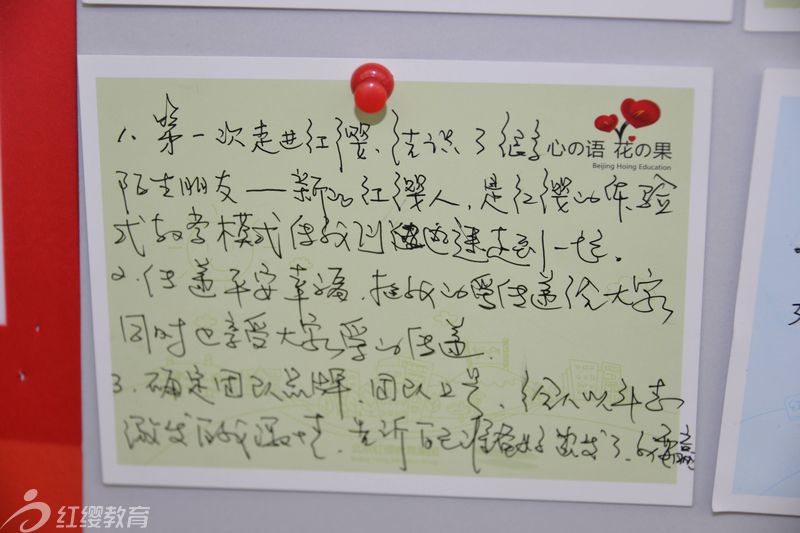 心の语 花の果
Beijing Hoing Education
1、第一次走进红缨、结识了很多
陌生朋友——新的红缨人,是红缨的体验
式教学模式使我们迅速走到一起.
2、传递平安幸福,把我的爱传递给大家
同时也享受大家爱的传递.
3、确定团队品牌,团队口号,给人以斗志
激发自我激情,告诉自己准备好
红缨教育